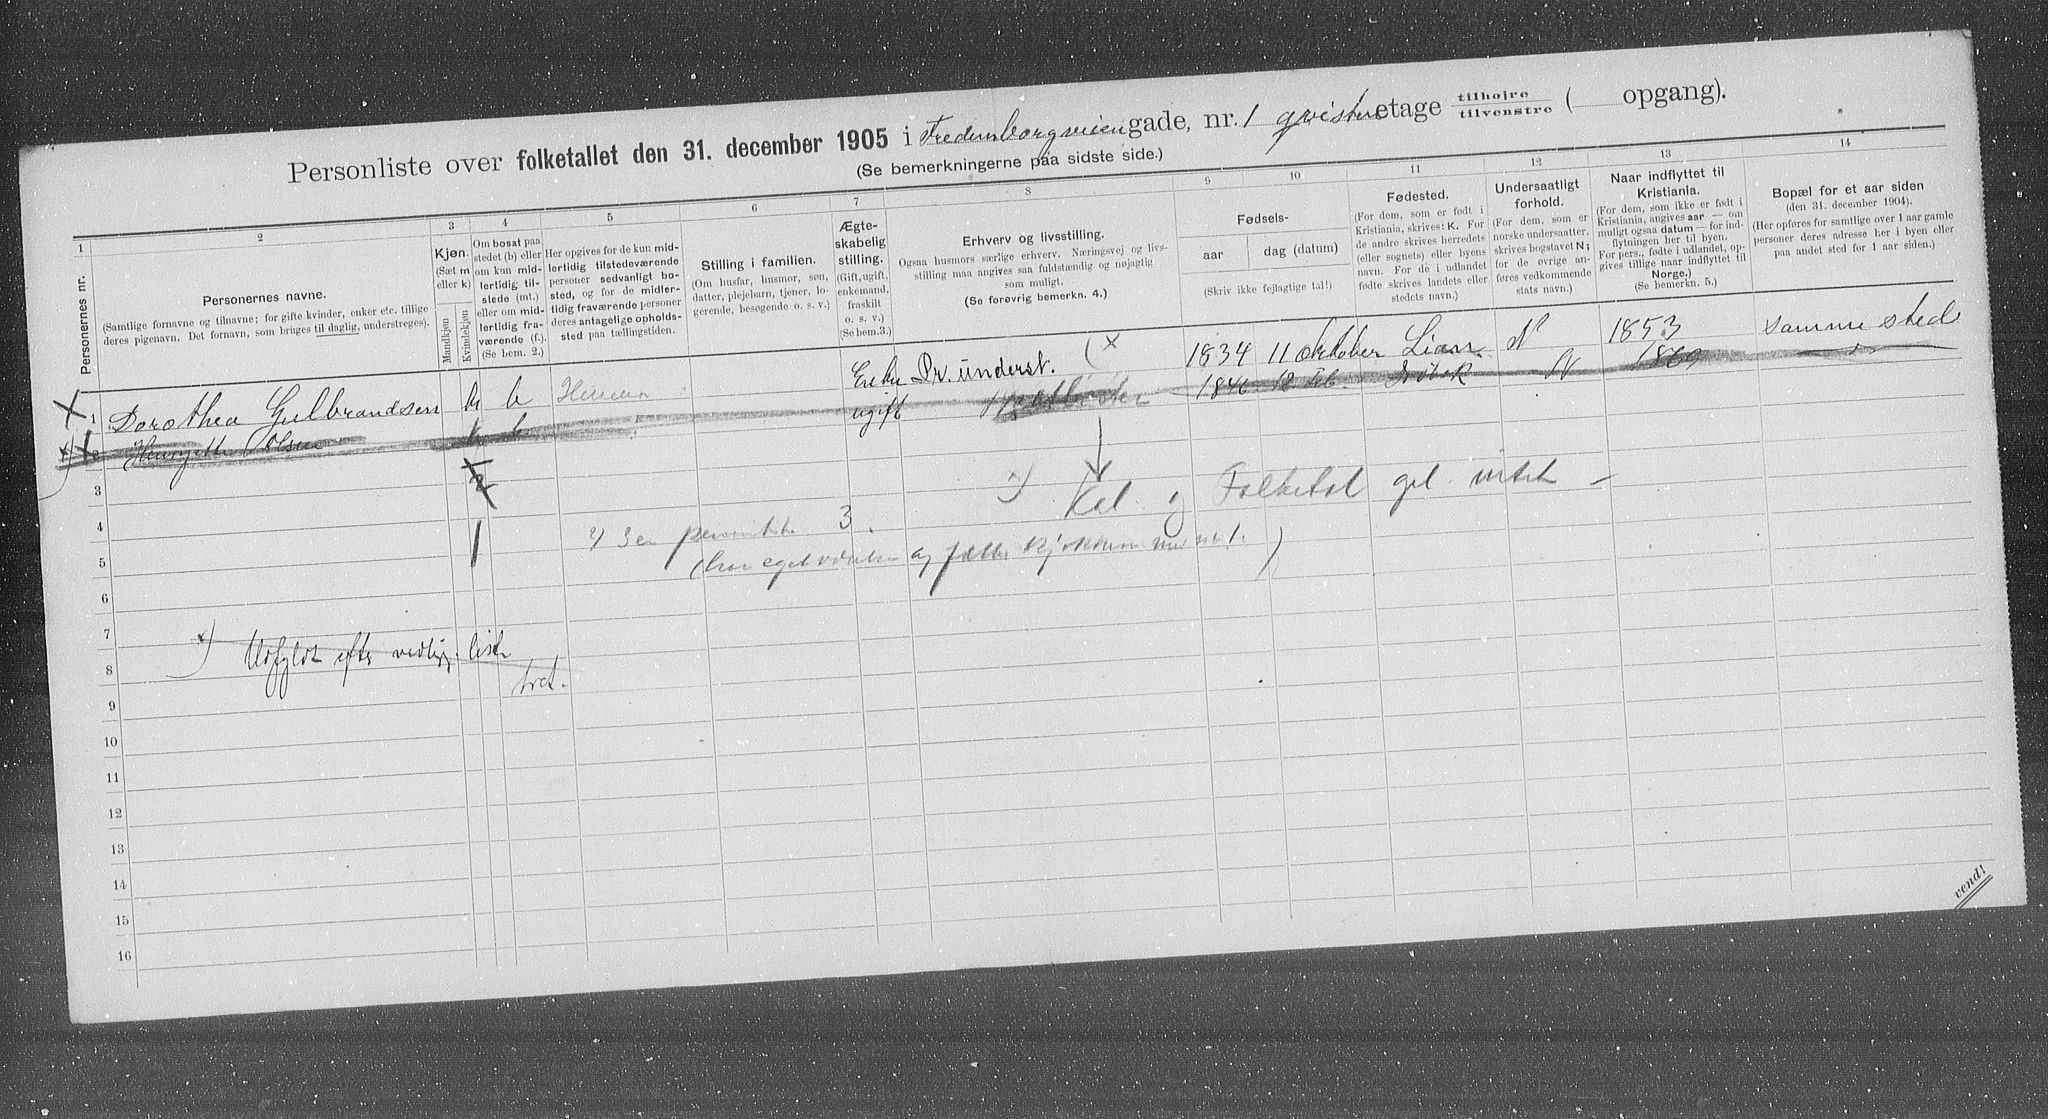 Personliste over folketallet den 31. december 1905 i Fredensborgveien gade, nr. 1 qvisten etage tilhøjre tilvenstre ( opgang).
(Se bemerkningerne paa sidste side.)
1 2 3 4 5 6 7 8 9 10 11 12 13 14
Personernes nr.
Personernes navne.
(Samtlige fornavne og tilnavne; for gifte kvinder, enker etc. tillige
deres pigenavn. Det fornavn, som bruges til daglig, understreges).
Kjøn.
(Sæt m
eller k)
Mandkjøn
Kvindekjøn
Om bosat paa
stedet (b) eller
om kun mid-
lertidig til-
stede (mt.)
eller om mid-
lertidig fra-
værende (f.).
(Se bem. 2.)
Her opgives for de kun mid-
lertidig tilstedeværende
personer sedvanligt bo-
sted, og for de midler-
tidig fraværende personer
deres antagelige opholds-
sted paa tællingstiden.
Stilling i familien.
(Om husfar, husmor, søn,
datter, plejebarn, tjener, lo-
gerende, besøgende o. s. v.)
Ægte-
skabelig
stilling.
(Gift, ugift,
enkemand,
fraskilt
o. s. v.)
(Se bem.3.)
Erhverv og livsstilling.
Ogsaa husmors særlige erhverv. Næringsvej og livs-
stilling maa angives saa fuldstændig og nøjagtig
som muligt.
(Se forøvrig bemerkn. 4.)
Fødsels-
aar dag (datum)
(Skriv ikke fejlagtige tal!)
Fødested.
(For dem, som er født i
Kristiania, skrives: K. For
de andre skrives herredets
(eller sognets) eller byens
navn. For de i udlandet
fødte skrives landets eller
stedets navn.)
Undersaatligt
forhold.
(For dem, som er
norske undersaatter,
skrives bogstavet N;
for de øvrige an-
føres vedkommende
stats navn.)
Naar indflyttet til
Kristiania.
(For dem, som ikke er født i
Kristiania, angives aar — om
muligt ogsaa datum — for ind-
flytningen her til byen.
For pers., fødte i udlandet, op-
gives tillige naar indflyttet til
Norge.)
(Se bemerkn. 5.)
Bopæl for et aar siden
(den 31. december 1904).
(Her opføres for samtlige over 1 aar gamle
personer deres adresse her i byen eller
paa andet sted for 1 aar siden.)
1 Dorothea Gulbrandsen k b Enke Pr. underst. (x 1834 11 oktober Lier N 1853 samme sted
x) 2 Olsen k b ugift 1846 12 Feb. Drøbak N
3 2 x) Kal. og Folketal gel. intet —
4 3
5 1 (har eget værelse og fælles kjøkken med nr 1.)
6
7
8 x) Udfyldt efter vedligg. liste
9
10
11
12
13
14
15
16
vend!